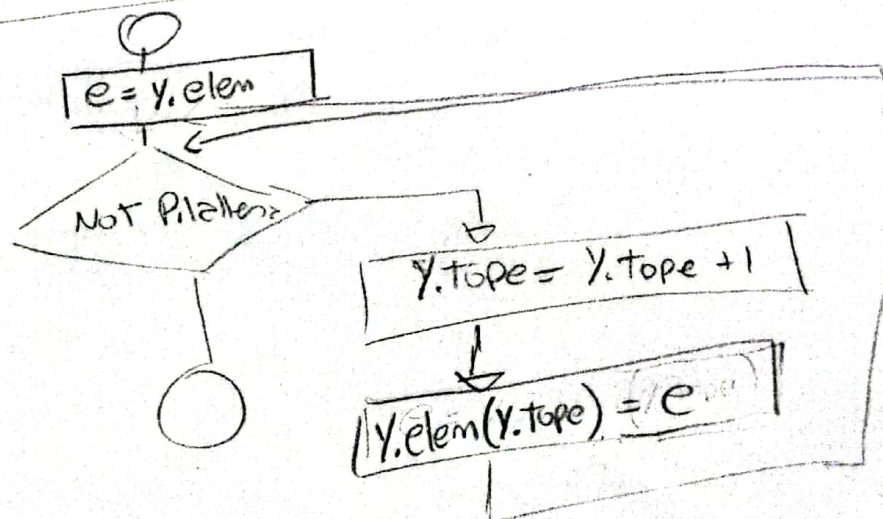 e = y.elem
Not Pilallena
y.tope = y.tope + 1
y.elem(y.tope) = e